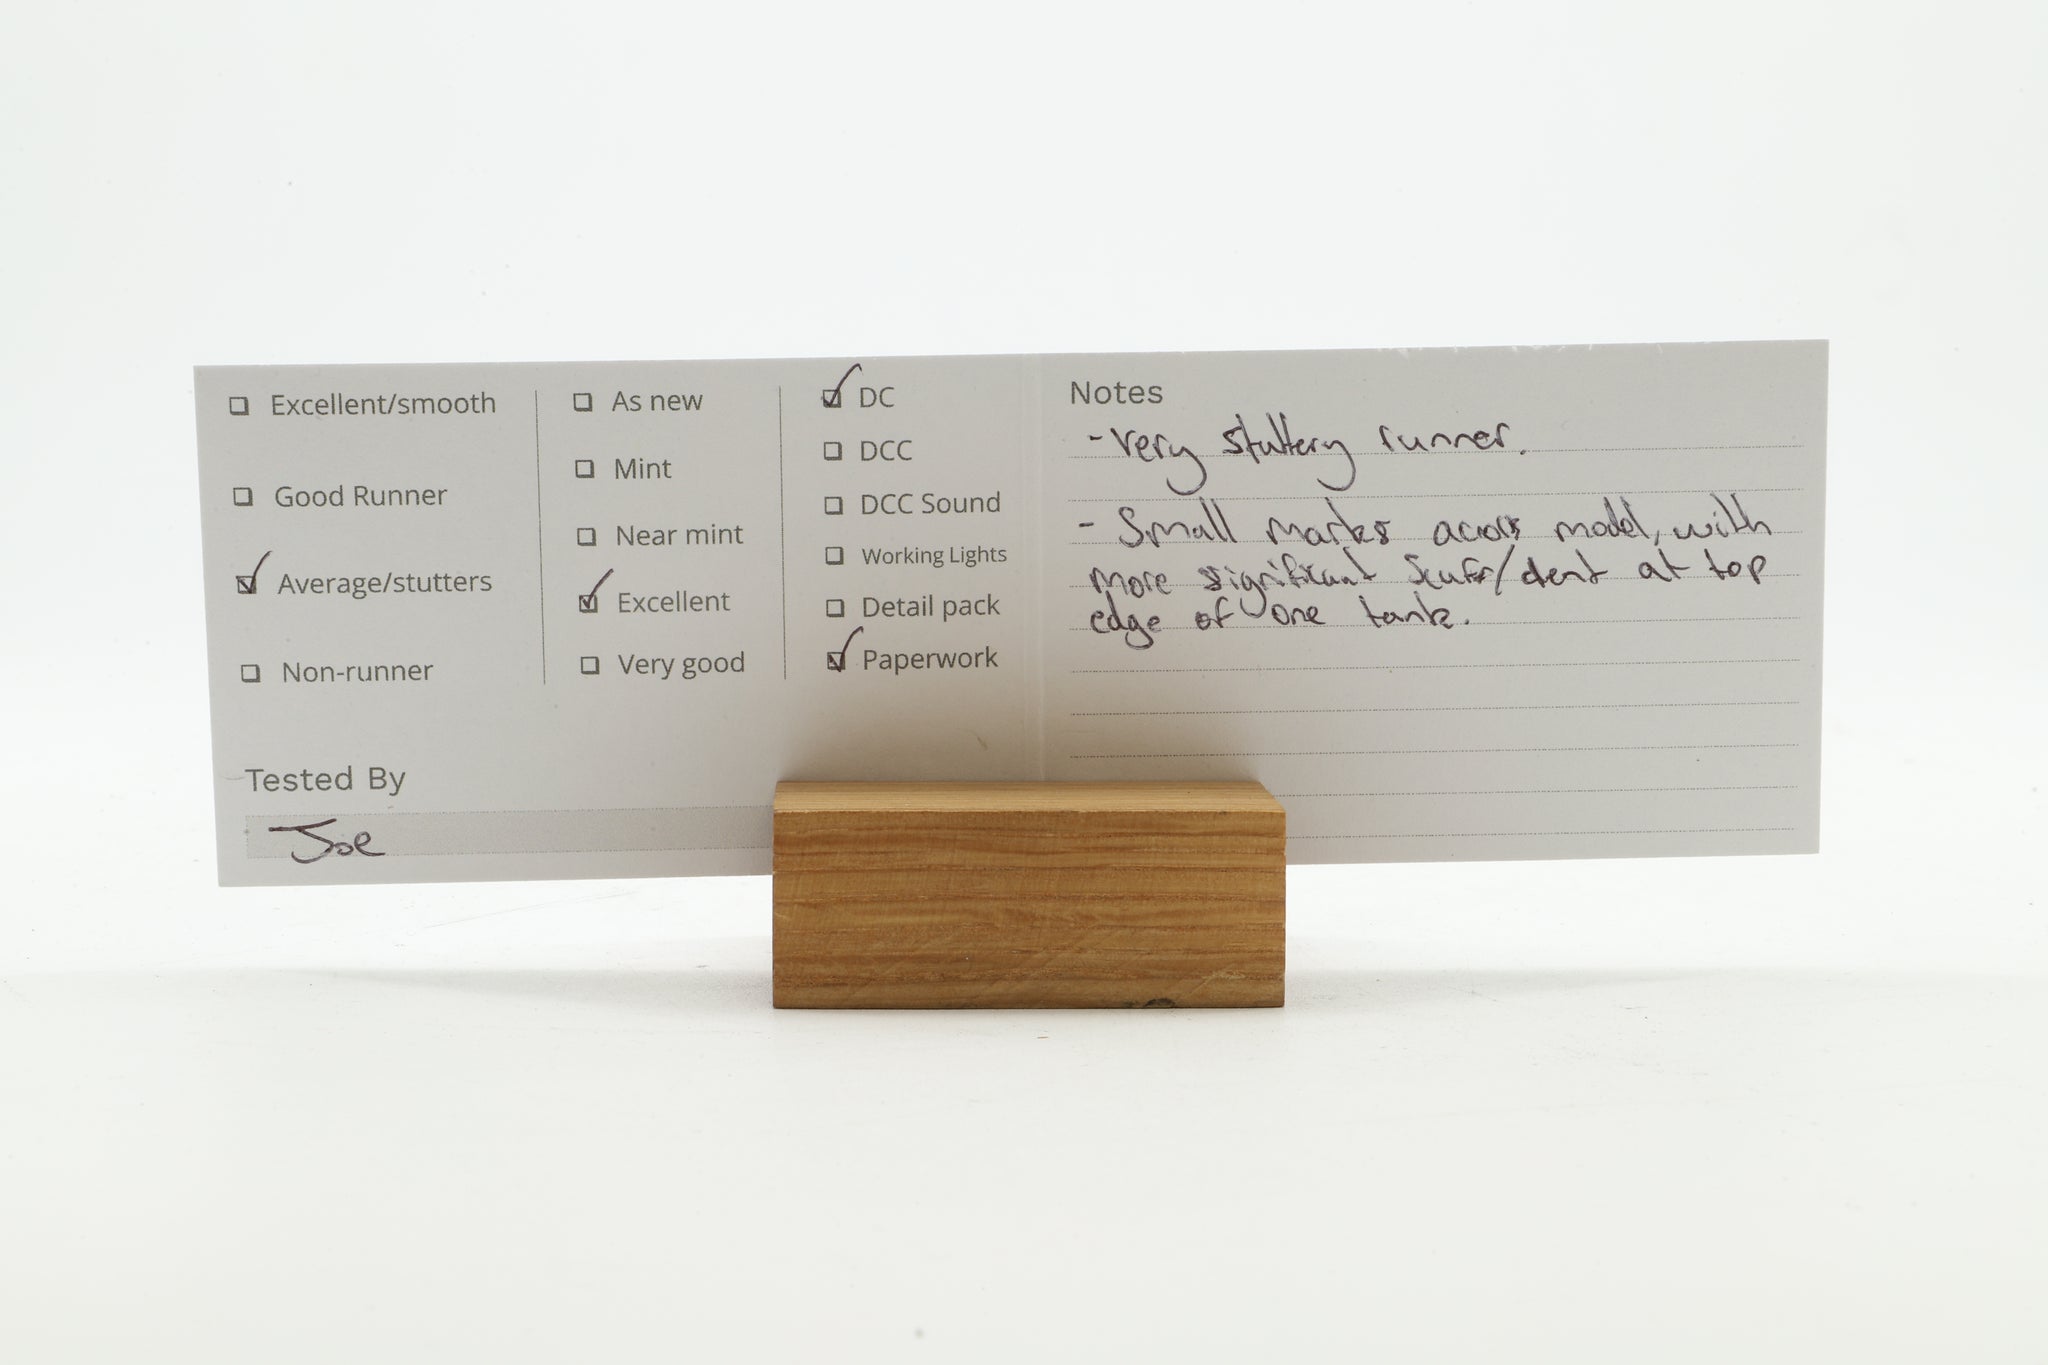 Excellent/smooth
Good Runner
Average/stutters
Non-runner
As new
Mint
Near mint
Excellent
Very good
DC
DCC
DCC Sound
Working Lights
Detail pack
Paperwork
Tested By
Joe
Notes
- Very stuttery runner.
- Small marks across model, with
more significant scuff/dent at top
edge of one tank.